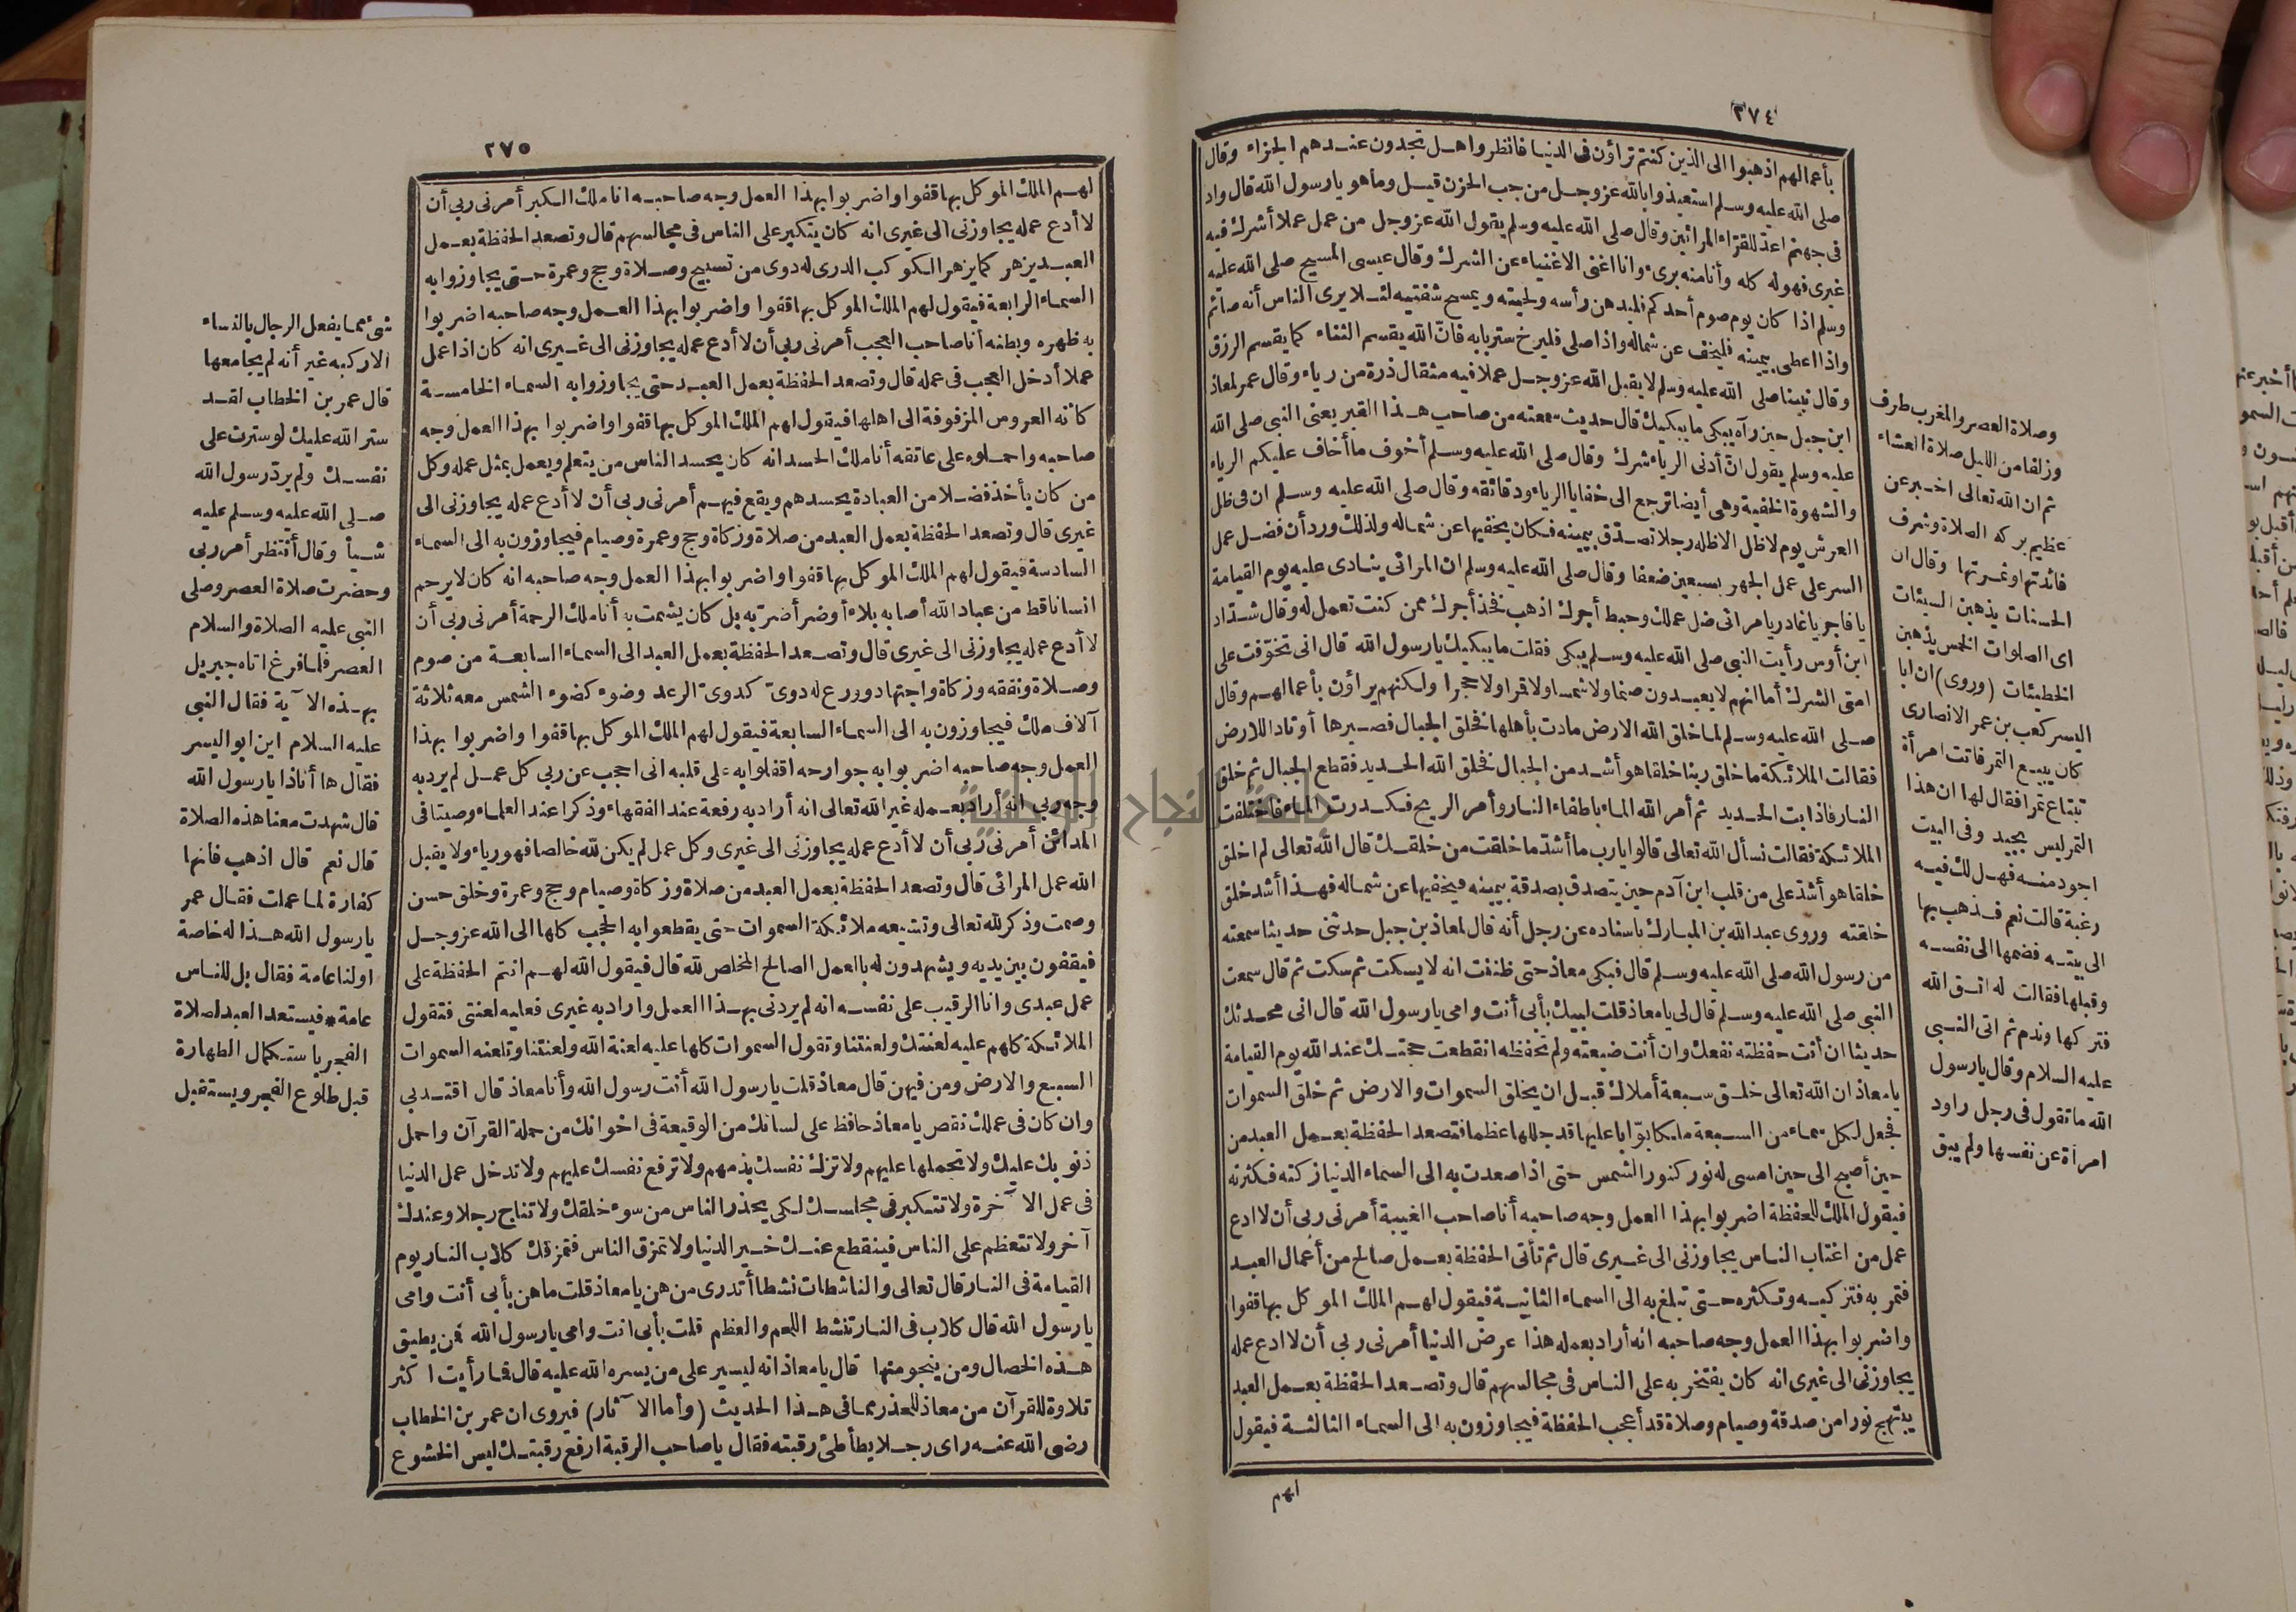 ٢٧٤
بأعمالهم اذهبوا الى الذين كنتم تراؤن فى الدنيا فانظروا هل تجدون عندهم الجزاء وقال
صلى الله عليه وسلم استعيذوا بالله عزوجل من جب الحزن قيل وما هو يا رسول الله قال واد
فى جهنم اعد للقرّاء المرائين وقال صلى الله عليه وسلم يقول الله عزوجل من عمل عملا أشرك فيه
غيرى فهوله كله وأنا منه برىء وانا اغنى الاغنياء عن الشرك وقال عيسى المسيح صلى الله عليه
وسلم اذا كان يوم صوم أحدكم فليدهن رأسه ولحيته ويمسح شفتيه لئلا يرى الناس أنه صائم
واذا اعطى بيمينه فليخف عن شماله واذا صلى فليرخ ستر بابه فانّ الله يقسم الثناء كما يقسم الرزق
وقال نبينا صلى الله عليه وسلم لا يقبل الله عزوجل عملا فيه مثقال ذرة من رياء وقال عمر لمعاذ
ابن جبل حين رآه يبكى ما يبكيك قال حديث سمعته من صاحب هذا القبر يعنى النبى صلى الله
عليه وسلم يقول انّ أدنى الرياء شرك وقال صلى الله عليه وسلم أخوف ما أخاف عليكم الرياء
والشهوة الخفية وهى أيضا ترجع الى خفايا الرياء ودقائقه وقال صلى الله عليه وسلم ان فى ظل
العرش يوم لا ظل الا ظله رجلا تصدّق بيمينه فكان يخفيها عن شماله ولذلك ورد أن فضل عمل
السر على عمل الجهر بسبعين ضعفا وقال صلى الله عليه وسلم ان المرائى ينادى عليه يوم القيامة
يا فاجر يا غادر يا مرائى ضل عملك وحبط أجرك اذهب فخذ أجرك ممن كنت تعمل له وقال شدّاد
ابن أوس رأيت النبى صلى الله عليه وسلم يبكى فقلت ما يبكيك يا رسول الله قال انى تخوّفت على
امتى الشرك أما انهم لا يعبدون صنما ولا شمسا ولا قمرا ولا حجرا ولكنهم يراؤن بأعمالهم وقال
صلى الله عليه وسلم لما خلق الله الارض مادت بأهلها فخلق الجبال فصيرها أوتادا للارض
فقالت الملائكة ما خلق ربنا خلقا هو أشد من الجبال فخلق الله الحديد فقطع الجبال ثم خلق
النار فاذابت الحديد ثم أمر الله الماء باطفاء النار وأمر الريح فكدرت الماء فاختلفت
الملائكة فقالت نسأل الله تعالى قالوا يارب ما أشدّ ما خلقت من خلقك قال الله تعالى لم اخلق
خلقا هو أشدّ على من قلب ابن آدم حين يتصدق بصدقة بيمينه فيخفيها عن شماله فهذا أشد خلق
خلقته وروى عبد الله بن المبارك باسناده عن رجل أنه قال لمعاذ بن جبل حدثنى حديثا سمعته
من رسول الله صلى الله عليه وسلم قال فبكى معاذ حتى ظننت انه لا يسكت ثم سكت ثم قال سمعت
النبى صلى الله عليه وسلم قال لى يا معاذ قلت لبيك بأبى أنت وامى يا رسول الله قال انى محدثك
حديثا ان أنت حفظته نفعك وان أنت ضيعته ولم تحفظه انقطعت حجتك عند الله يوم القيامة
يا معاذ ان الله تعالى خلق سبعة أملاك قبل ان يخلق السموات والارض ثم خلق السموات
فجعل لكل سماء من السبعة ملكا بوّابا عليها قد جللها عظما فتصعد الحفظة بعمل العبد من
حين أصبح الى حين امسى له نور كنور الشمس حتى اذا صعدت به الى السماء الدنيا زكته فكثرته
فيقول الملك للحفظة اضربوا بهذا العمل وجه صاحبه أنا صاحب الغيبة أمرنى ربى أن لا ادع
عمل من اغتاب الناس يجاوزنى الى غيرى قال ثم تأتى الحفظة بعمل صالح من أعمال العبد
فتمر به فتزكيه وتكثره حتى تبلغ به الى السماء الثانية فيقول لهم الملك الموكل بها قفوا
واضربوا بهذا العمل وجه صاحبه انه أراد بعمله هذا عرض الدنيا أمرنى ربى أن لا ادع عمله
يجاوزنى الى غيرى انه كان يفتخر به على الناس فى مجالسهم قال وتصعد الحفظة بعمل العبد
يبتهج نورا من صدقة وصيام وصلاة قد أعجب الحفظة فيجاوزون به الى السماء الثالثة فيقول
لهم
وصلاة العصر والمغرب طرف
وزلفا من الليل صلاة العشاء
ثم ان الله تعالى اخبر عن
عظيم بركة الصلاة وشرف
فائدتها وثمرتها وقال ان
الحسنات يذهبن السيئات
اى الصلوات الخمس يذهبن
الخطيئات (وروى) ان ابا
اليسر كعب بن عمر الانصارى
كان يبيع التمر فاتت امرأة
تبتاع تمرا فقال لها ان هذا
التمر ليس بجيد وفى البيت
اجود منه فهل لك فيه
رغبة قالت نعم فذهب بها
الى بيته فضمها الى نفسه
وقبلها فقالت له اتق الله
فتركها وندم ثم اتى النبى
عليه السلام وقال يا رسول
الله ما تقول فى رجل راود
امرأة عن نفسها ولم يبق
٢٧٥
لهم الملك الموكل بها قفوا واضربوا بهذا العمل وجه صاحبه انا ملك الكبر أمرنى ربى أن
لا أدع عمله يجاوزنى الى غيرى انه كان يتكبر على الناس فى مجالسهم قال وتصعد الحفظة بعمل
العبد يزهر كما يزهر الكوكب الدرى له دوى من تسبيح وصلاة وحج وعمرة حتى يجاوزوا به
السماء الرابعة فيقول لهم الملك الموكل بها قفوا واضربوا بهذا العمل وجه صاحبه اضربوا
به ظهره وبطنه أنا صاحب العجب أمرنى ربى أن لا أدع عمله يجاوزنى الى غيرى انه كان اذا عمل
عملا أدخل العجب فى عمله قال وتصعد الحفظة بعمل العبد حتى يجاوزوا به السماء الخامسة
كأنه العروس المزفوفة الى اهلها فيقول لهم الملك الموكل بها قفوا واضربوا بهذا العمل وجه
صاحبه واحملوه على عاتقه أنا ملك الحسد انه كان يحسد الناس من يتعلم ويعمل بمثل عمله وكل
من كان يأخذ فضلا من العبادة يحسدهم ويقع فيهم أمرنى ربى أن لا أدع عمله يجاوزنى الى
غيرى قال وتصعد الحفظة بعمل العبد من صلاة وزكاة وحج وعمرة وصيام فيجاوزون به الى السماء
السادسة فيقول لهم الملك الموكل بها قفوا واضربوا بهذا العمل وجه صاحبه انه كان لا يرحم
انسانا قط من عباد الله أصابه بلاء أو ضر أضرّ به بل كان يشمت به أنا ملك الرحمة أمرنى ربى أن
لا أدع عمله يجاوزنى الى غيرى قال وتصعد الحفظة بعمل العبد الى السماء السابعة من صوم
وصلاة ونفقه وزكاة واجتهاد وورع له دوىّ كدوىّ الرعد وضوء كضوء الشمس معه ثلاثة
آلاف ملك فيجاوزون به الى السماء السابعة فيقول لهم الملك الموكل بها قفوا واضربوا بهذا
العمل وجه صاحبه اضربوا به جوارحه اقفلوا به على قلبه انى احجب عن ربى كل عمل لم يرد به
وجه ربى انه أراد بعمله غير الله تعالى انه أراد به رفعة عند الفقهاء وذكرا عند العلماء وصيتا فى
المدائن أمرنى ربى أن لا أدع عمله يجاوزنى الى غيرى وكل عمل لم يكن لله خالصا فهو رياء ولا يقبل
الله عمل المرائى قال وتصعد الحفظة بعمل العبد من صلاة وزكاة وصيام وحج وعمرة وخلق حسن
وصمت وذكر لله تعالى وتشيعه ملائكة السموات حتى يقطعوا به الحجب كلها الى الله عزوجل
فيقفون بين يديه ويشهدون له بالعمل الصالح المخلص لله قال فيقول الله لهم انتم الحفظة على
عمل عبدى وانا الرقيب على نفسه انه لم يردنى بهذا العمل واراد به غيرى فعليه لعنتى فتقول
الملائكة كلهم عليه لعنتك ولعنتنا وتقول السموات كلها عليه لعنة الله ولعنتنا وتلعنه السموات
السبع والارض ومن فيهن قال معاذ قلت يا رسول الله أنت رسول الله وأنا معاذ قال اقتد بى
وان كان فى عملك نقص يا معاذ حافظ على لسانك من الوقيعة فى اخوانك من حملة القرآن واحمل
ذنوبك عليك ولا تحملها عليهم ولا تزك نفسك بذمهم ولا ترفع نفسك عليهم ولا تدخل عمل الدنيا
فى عمل الآخرة ولا تتكبر فى مجلسك لكى يحذر الناس من سوء خلقك ولا تناج رجلا وعندك
آخر ولا تتعظم على الناس فينقطع عنك خير الدنيا ولا تمزق الناس فتمزقك كلاب النار يوم
القيامة فى النار قال تعالى والناشطات نشطا أتدرى من هن يا معاذ قلت ما هن بأبى أنت وامى
يا رسول الله قال كلاب فى النار تنشط اللحم والعظم قلت بأبى انت وامى يا رسول الله فمن يطيق
هذه الخصال ومن ينجو منها قال يا معاذ انه ليسير على من يسره الله عليه قال فما رأيت اكثر
تلاوة للقرآن من معاذ للحذر مما فى هذا الحديث (وأما الآثار) فيروى ان عمر بن الخطاب
رضى الله عنه راى رجلا يطأطئ رقبته فقال يا صاحب الرقبة ارفع رقبتك ليس الخشوع
شئ مما يفعل الرجال بالنساء
الا ركبه غير أنه لم يجامعها
قال عمر بن الخطاب لقد
ستر الله عليك لو سترت على
نفسك ولم يردّ رسول الله
صلى الله عليه وسلم عليه
شيأ وقال أنتظر أمر ربى
وحضرت صلاة العصر وصلى
النبى عليه الصلاة والسلام
العصر فلما فرغ اتاه جبريل
بهذه الآية فقال النبى
عليه السلام اين ابو اليسر
فقال ها أنا ذا يا رسول الله
قال شهدت معنا هذه الصلاة
قال نعم قال اذهب فانها
كفارة لما عملت فقال عمر
يا رسول الله هذا له خاصة
او لنا عامة فقال بل للناس
عامة * فيستعد العبد لصلاة
الفجر باستكمال الطهارة
قبل طلوع الفجر ويستقبل
جامعة النجاح الوطنية